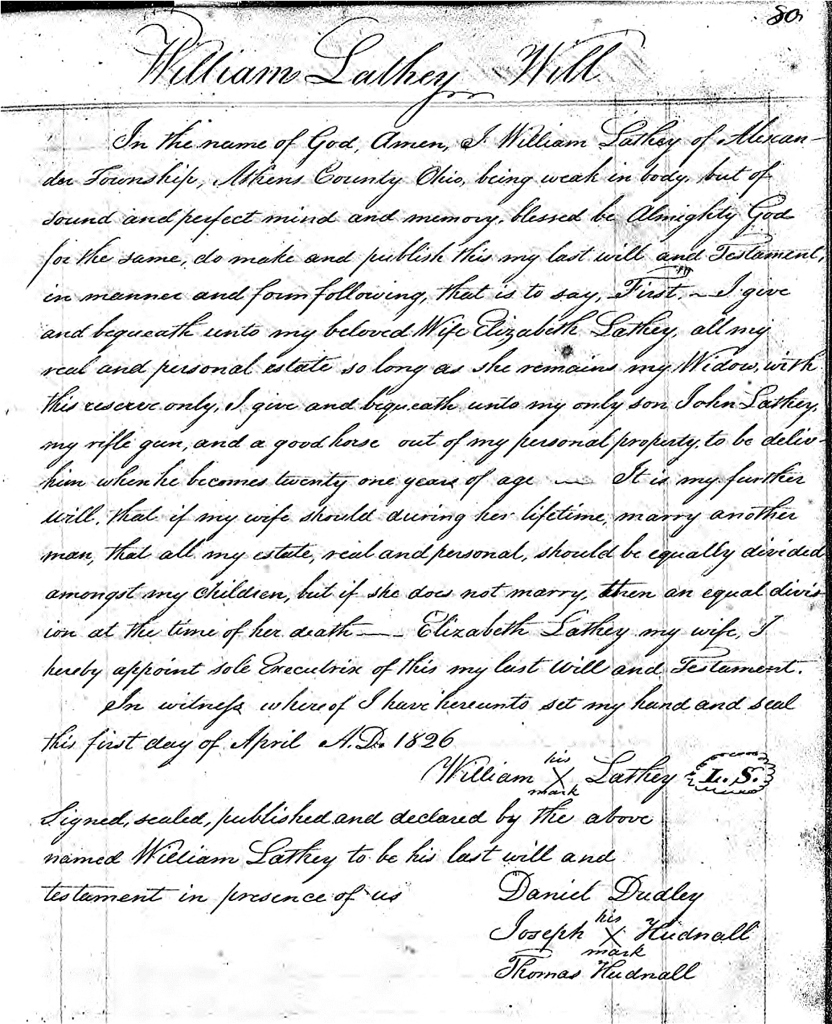 80
William Lathey Will
In the name of God, Amen, I William Lathey of Alexan-
der Township, Athens County Ohio, being weak in body, but of
sound and perfect mind and memory, blessed be Almighty God
for the same, do make and publish this my last will and Testament,
in manner and form following, that is to say, First, — I give
and bequeath unto my beloved Wife Elizabeth Lathey, all my
real and personal estate so long as she remains my Widow, with
this reserve only, I give and bequeath unto my only son John Lathey,
my rifle gun, and a good horse out of my personal property, to be deliv-
him when he becomes twenty one years of age — It is my further
will, that if my wife should during her lifetime, marry another
man, that all my estate, real and personal, should be equally divided
amongst my children, but if she does not marry, then an equal divis
ion at the time of her death — Elizabeth Lathey my wife, I
hereby appoint sole Executrix of this my last Will and Testament.
In witness where of I have hereunto set my hand and seal
this first day of April A.D. 1826
his
William X Lathey L. S.
mark
Signed, sealed, published and declared by the above
named William Lathey to be his last will and
testament in presence of us
Daniel Dudley
his
Joseph X Hudnall
mark
Thomas Hudnall